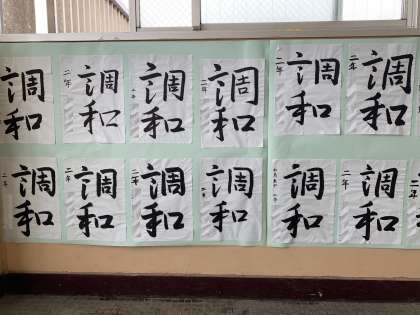 調和
二年
調和
二年
調和
調和
調和
二年
調和
二年
調和
二年
調和
二年
調和
二年
調和
調和
調和
調和
二年